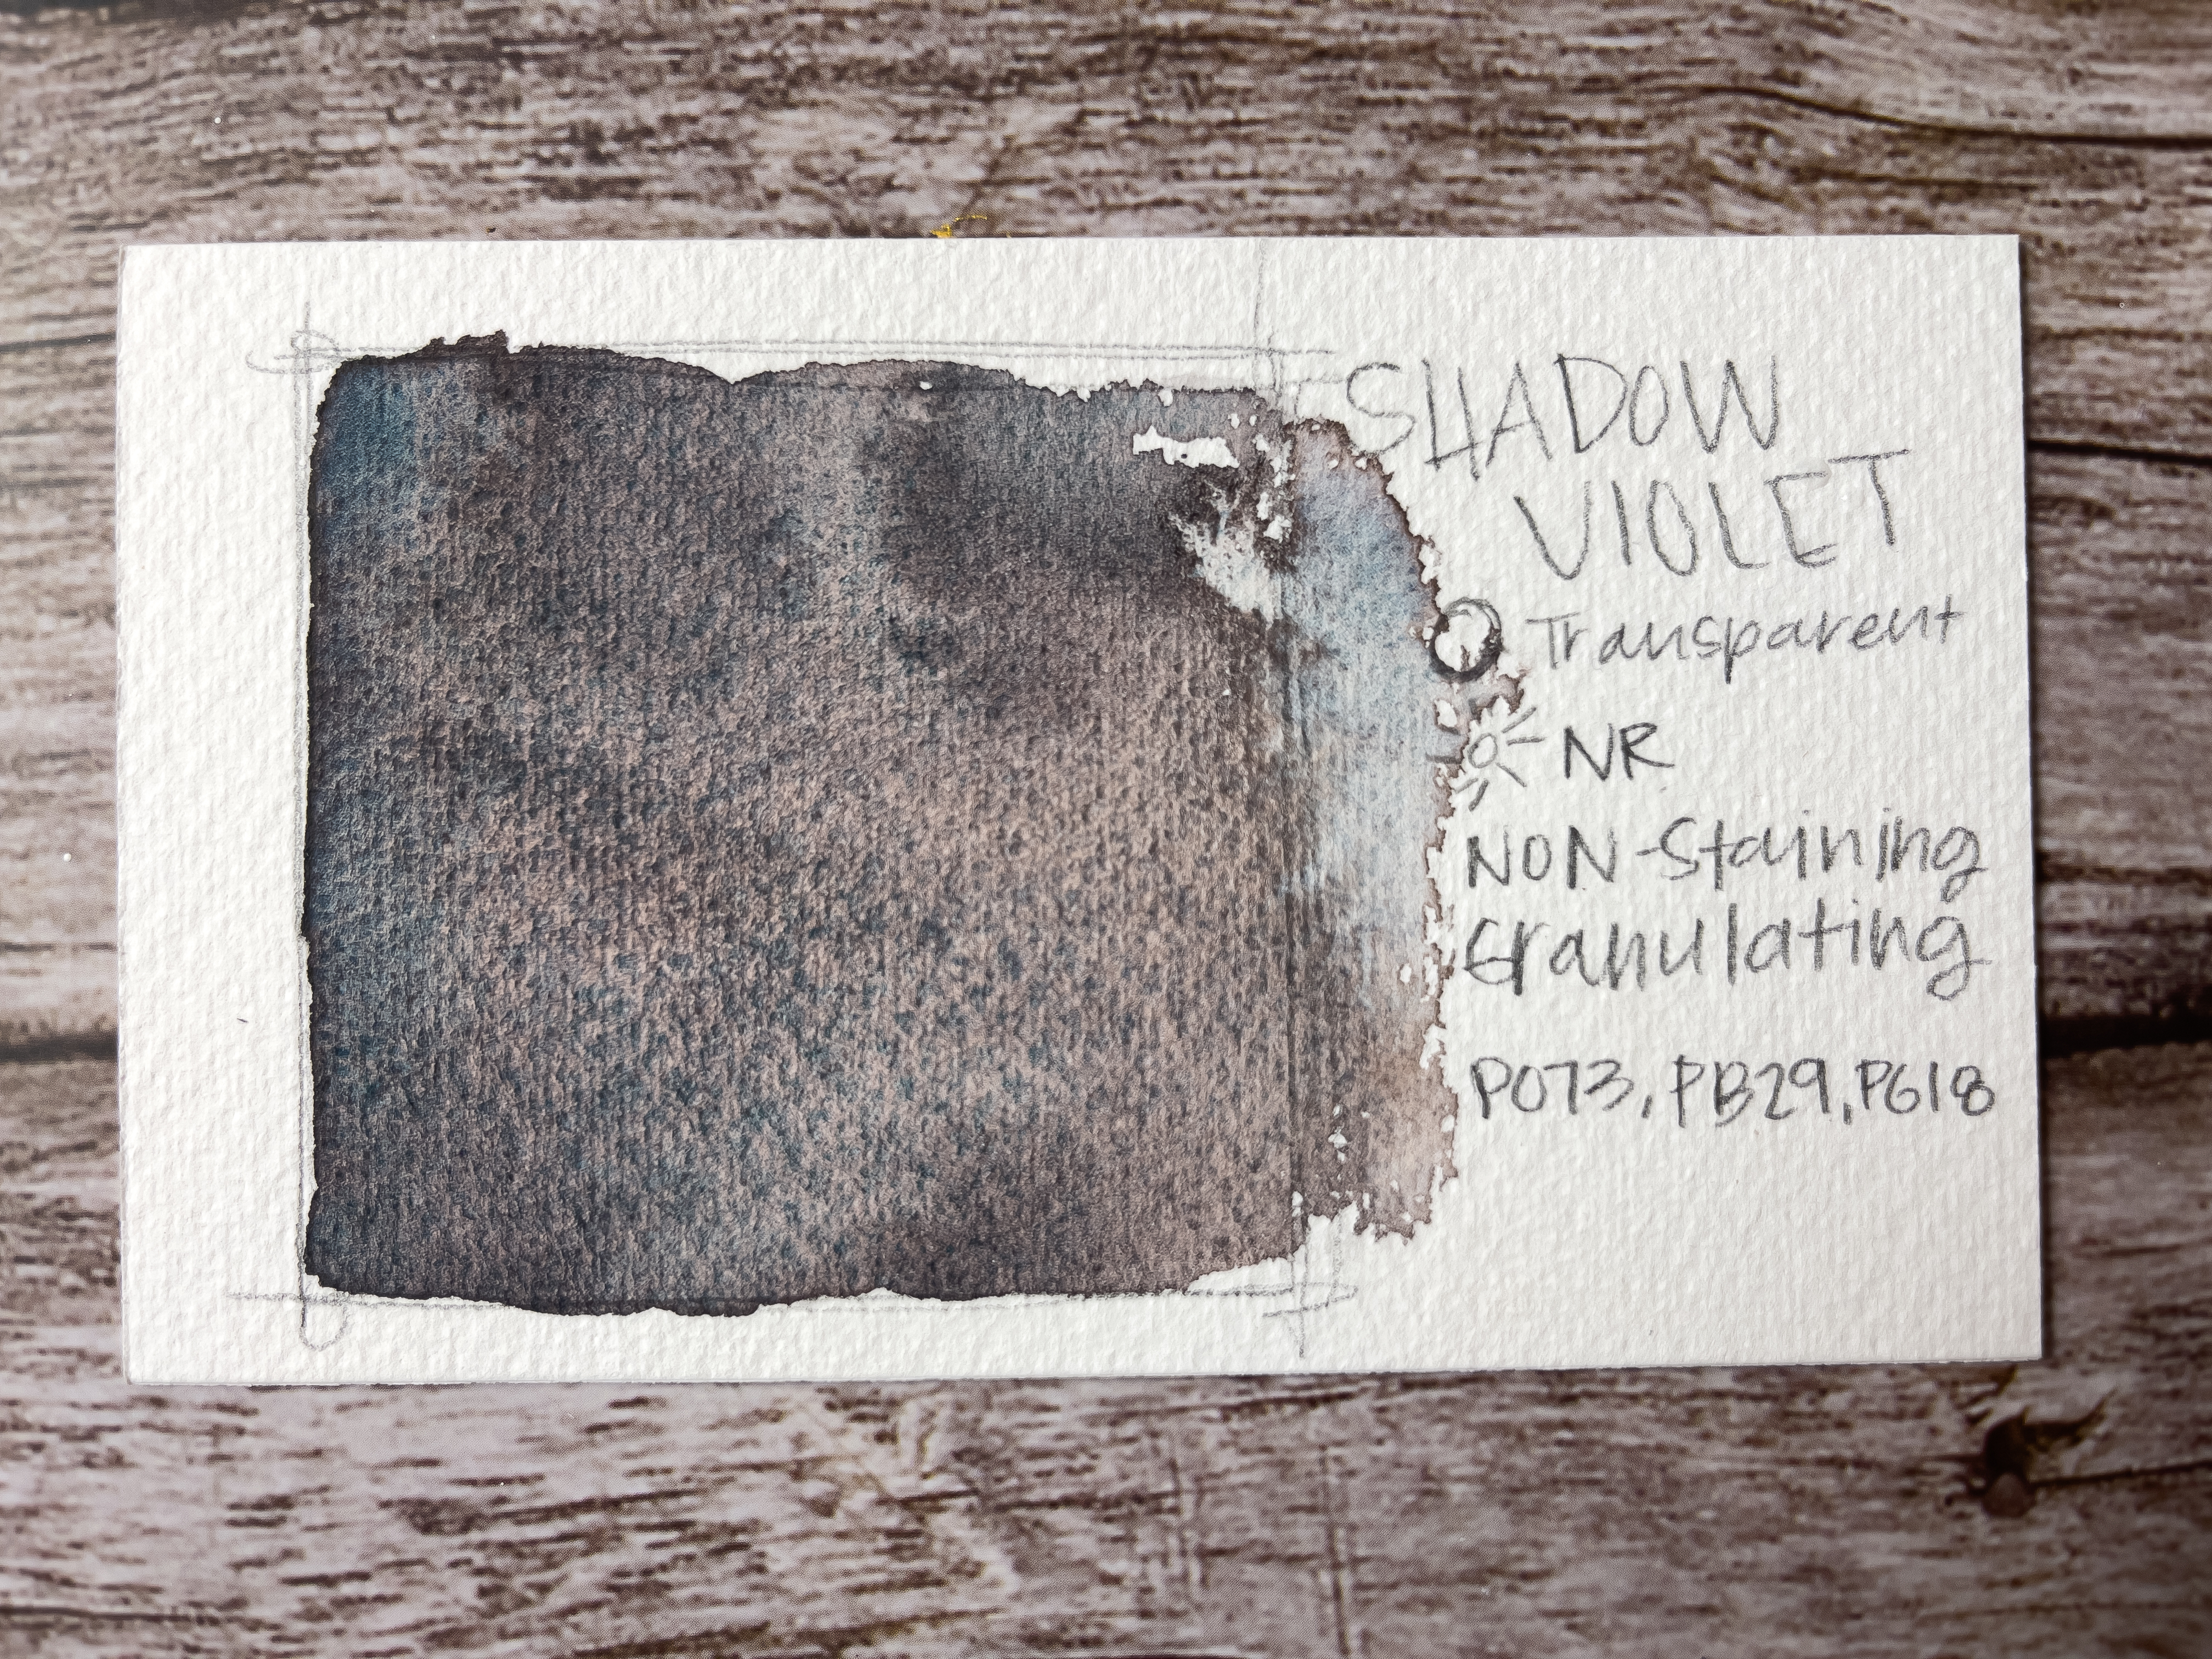 SHADOW
VIOLET
Transparent
NR
NON-Staining
Granulating
PO73, PB29, PG18